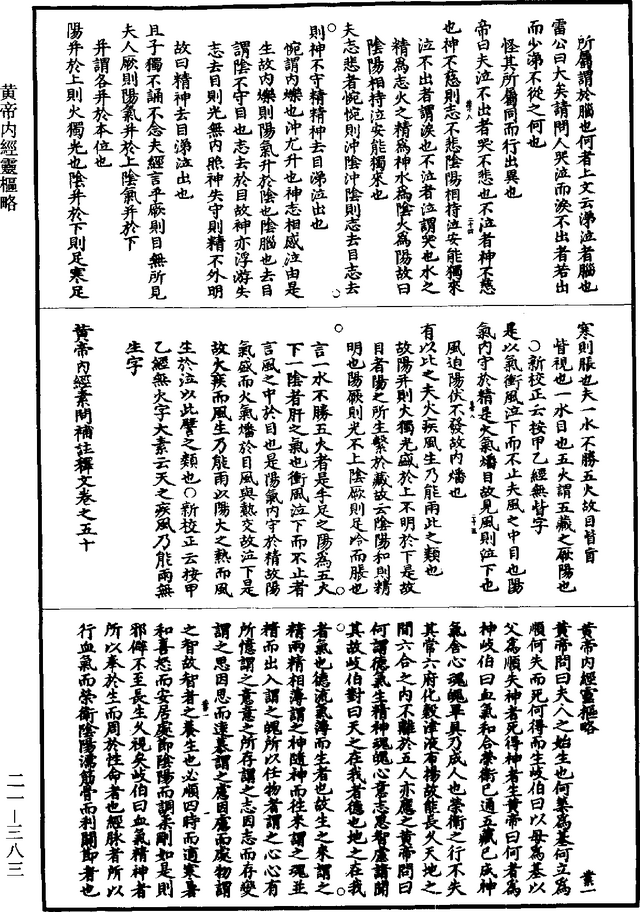 黃帝內經靈樞略
所屬謂於腦也何者上文云涕泣者腦也
雷公曰大矣請問人哭泣而淚不出者若出
而少涕不從之何也
怪其所屬同而行出異也
帝曰夫泣不出者哭不悲也不泣者神不慈
也神不慈則志不悲陰陽相持泣安能獨來
泣不出者謂淚也不泣者泣謂哭也水之
精爲志火之精爲神水爲陰火爲陽故曰
陰陽相持泣安能獨來也
夫志悲者惋惋則沖陰沖陰則志去目志去
則神不守精精神去目涕泣出也
惋謂內爍也沖尤升也神志相感泣由是
生故內爍則陽氣升於陰也陰腦也去目
謂陰不守目也志去於目故神亦浮游失
志去目則光無內照神失守則精不外明
故曰精神去目涕泣出也
且子獨不誦不念夫經言乎厥則目無所見
夫人厥則陽氣并於上陰氣并於下
并謂各并於本位也
陽并於上則火獨光也陰并於下則足寒足
寒則脹也夫一水不勝五火故目眥盲
眥視也一水目也五火謂五藏之厥陽也
○新校正云按甲乙經無眥字
是以氣衝風泣下而不止夫風之中目也陽
氣內守於精是火氣燔目故見風則泣下也
風迫陽伏不發故內燔也
有以比之夫火疾風生乃能雨此之類也
故陽并則火獨光盛於上不明於下是故
目者陽之所生繫於藏故云陰陽和則精
明也陽厥則光不上陰厥則足冷而脹也
言一水不勝五火者是手足之陽爲五火
下一陰者肝之氣也衝風泣下而不止者
言風之中於目也是陽氣內守於精故陽
氣盛而火氣燔於目風與熱交故泣下是
故火疾而風生乃能雨以陽火之熱而風
生於泣以此譬之類也○新校正云按甲
乙經無火字太素云天之疾風乃能雨無
生字
黃帝內經素問補註釋文卷之五十
黃帝內經靈樞略
業一
黃帝問曰夫人之始生也何築爲基何立爲
順何失而死何得而生歧伯曰以母爲基以
父爲順失神者死得神者生黃帝曰何者爲
神歧伯曰血氣和合榮衛已通五藏已成神
氣舍心魂魄畢具乃成人也榮衛之行不失
其常六府化穀津液布揚故能長久天地之
間六合之內不離於五人亦應之黃帝問曰
何謂德氣生精神魂魄心意志思智慮請問
其故歧伯對曰天之在我者德也地之在我
者氣也德流氣薄而生者也故生之來謂之
精兩精相薄謂之神隨神而徃來謂之魂並
精而出入謂之魄所以任物者謂之心心有
所憶謂之意意之所存謂之志因志而存變
謂之思因思而遠慕謂之慮因慮而處物謂
之智故智者之養生也必順四時而適寒暑
和喜怒而安居處節陰陽而調柔剛如是則
邪僻不至長生久視矣歧伯曰血氣精神者
所以奉於生而周於性命者也經脉者所以
行血氣而榮衛陰陽濡筋骨而利關節者也
二一—三八三